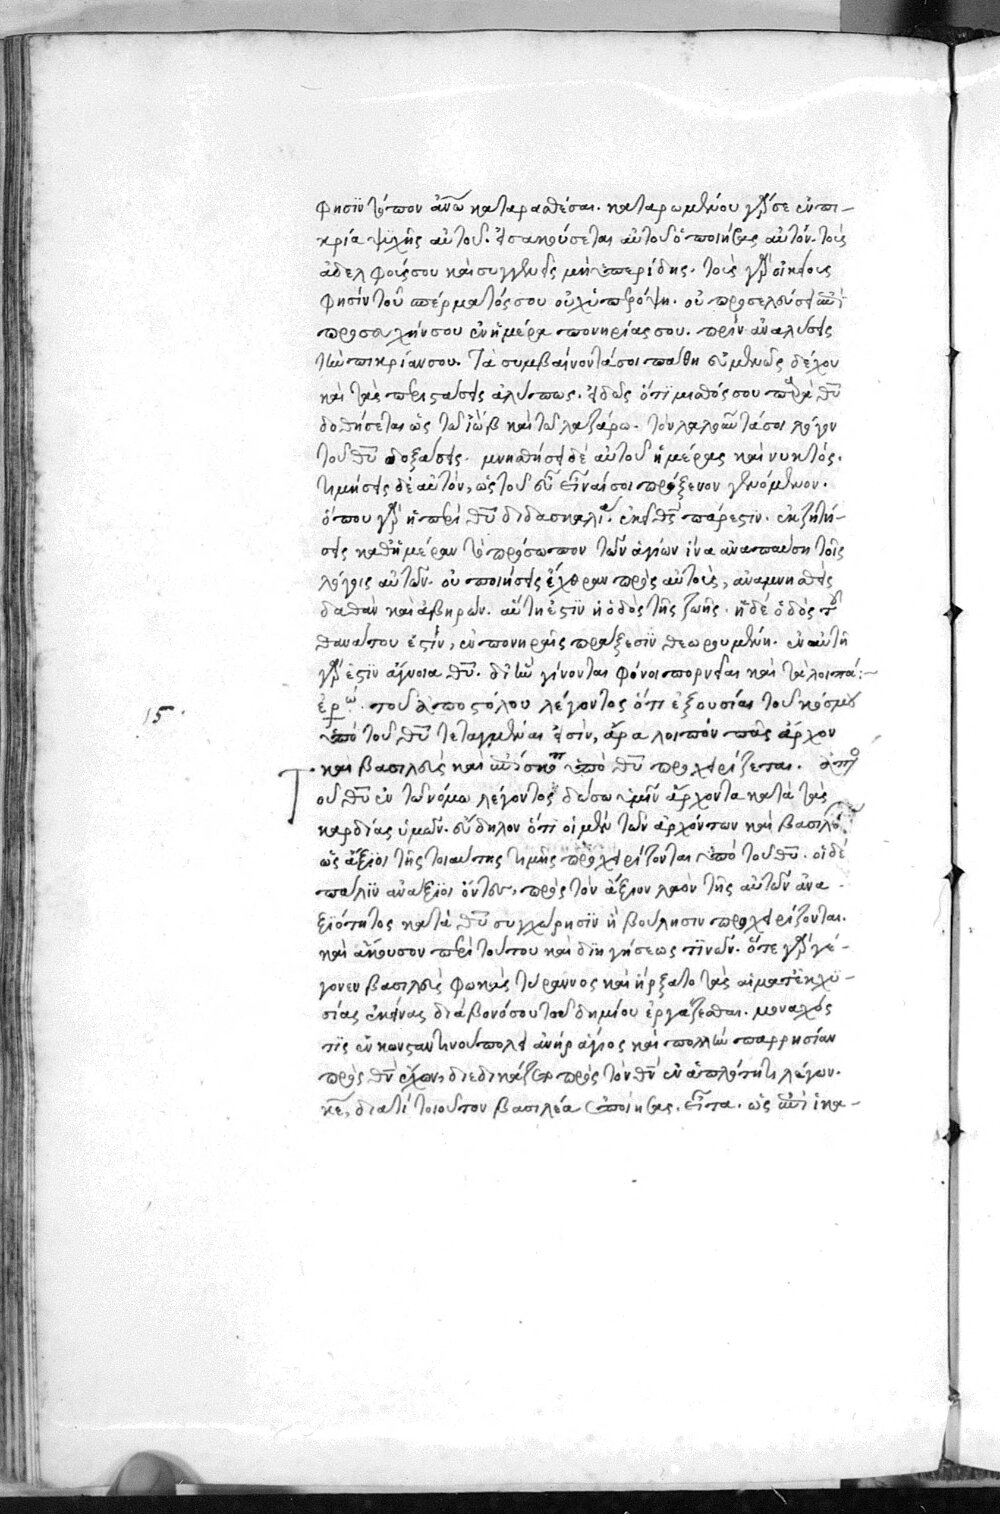 φησὶν τόπον ἀνω καταρασθέσαι. καταρωμένου γάρ σε ἐν πι-
κρία ψϊχῆς αὐτοῦ. εἰσακούσεται αὐτοῦ ὁ ποιήσας αὐτόν. τοὺς
ἀδελφούς σου καὶ συγγενεῖς μὴ ὑπερίδης. τοὺς γάρ οἰκείους
φησίν τοῦ σπέρματός σου οὐχ ὑπερόψη. οὐ προσελεύσει
προσευχήν σου ἐν ἡμέρα πονηρίας σου. πρὶν ἀναλύσεις
τὴν πικρίαν σου. Τὰ συμβαίνοντά σοι πάθη εὐμενῶς δέχου
καὶ τὰς περιστάσεις ἀλύπως. εἰδὼς ὅτι μισθός σου παρὰ θῦ
δοθήσεται ὡς τῶ ἰὼβ καὶ τῶ λαζάρω. τὸν λαλοῦντά σοι λόγον
τοῦ θῦ δοξάσεις. μνησθήσει δὲ αὐτοῦ ἡμέρας καὶ νυκτός.
τιμήσεις δὲ αὐτὸν, ὡς τοῦ εὖ εἶναί σοι πρόξενον γενόμενον.
ὅπου γάρ ἡ περὶ θῦ διδασκαλία ἐκεῖ θς πάρεστιν. ἐκζητή-
σεις καθἡμέραν τὸ πρόσωπον τῶν ἁγίων ἵνα ἀναπαύση τοῖς
λόγοις αὐτῶν. οὐ ποιήσεις ἔχθραν πρὸς αὐτοὺς, ἀναμνησθεὶς
δαθὰν καὶ ἀβηρών. αὕτη ἐστὶν ἡ ὁδὸς τῆς ζωῆς. ἡ δὲ ὁδὸς τοῦ
θανάτου ἐστὶν, ἐν πονηραῖς πράξεσιν θεωρουμένη. ἐν αὐτῆ
γάρ ἐστὶν ἄγνοια θῦ. διὧν γίνονται φόνοι πορνεῖαι καὶ τὰ λοιπά:~
15. ἐρώ. τοῦ ἀποστόλου λέγοντος ὅτι ἐξουσίαι τοῦ κόσμου
ὑπὸ τοῦ θῦ τεταγμέναι εἰσὶν, ἄρα λοιπὸν πᾶς ἄρχον
και βασιλεὺς καὶ ἐπίσκοπ ὑπὸ θῦ προχειρίζεται. ἀπό
Τοῦ θῦ ἐν τῶ νόμω λέγοντος δώσω ὑμῖν ἄρχοντα κατὰ τὰς
καρδίας ὑμῶν. εὔδηλον ὅτι οἱ μὲν τῶν ἀρχόντων καὶ βασιλέων
ὡς ἄξιοι τῆς τοιαύτης τιμῆς προχειρίζονται ὑπὸ τοῦ θῦ. οἱ δὲ
πάλιν ἀνάξιοι ὄντες, πρὸς τὸν ἄξιον λαὸν τῆς αὐτῶν ἀνα
ξϊότητος κατὰ θῦ συγχώρησϊν ἢ βούλησιν προχειρίζονται.
καὶ ἄκουσον περὶ τούτου καὶ διηγήσεως τϊνῶν. ὅτε γὰρ γέ-
γονεν βασιλεὺς φωκᾶς τύραννος καὶ ἤρξατο τὰς αἱματεκχϋ-
σίας ἐκείνας διὰ βονόσου τοῦ δημίου ἐργάζεσθαι. μοναχός
τϊς ἐν κωνσαντινουπόλει ἀνὴρ ἅγιος καὶ πολλὴν παρρησίαν
πρὸς θν ἔχων, διεδικάζετο πρὸς τὸν θν ἐν ἁπλότητι λέγων.
κε, διατί τοιοῦτον βασιλέα ἐποίησας. εἶτα. ὡς ἐπὶ ἱκα-